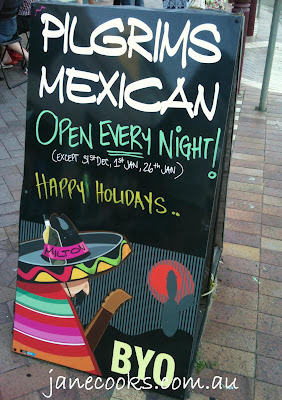 PILGRIMS
MEXICAN
OPEN EVERY NIGHT!
(EXCEPT 31ST DEC, 1ST JAN, 26TH JAN)
HAPPY HOLIDAYS..
MILTON
BYO
janecooks.com.au